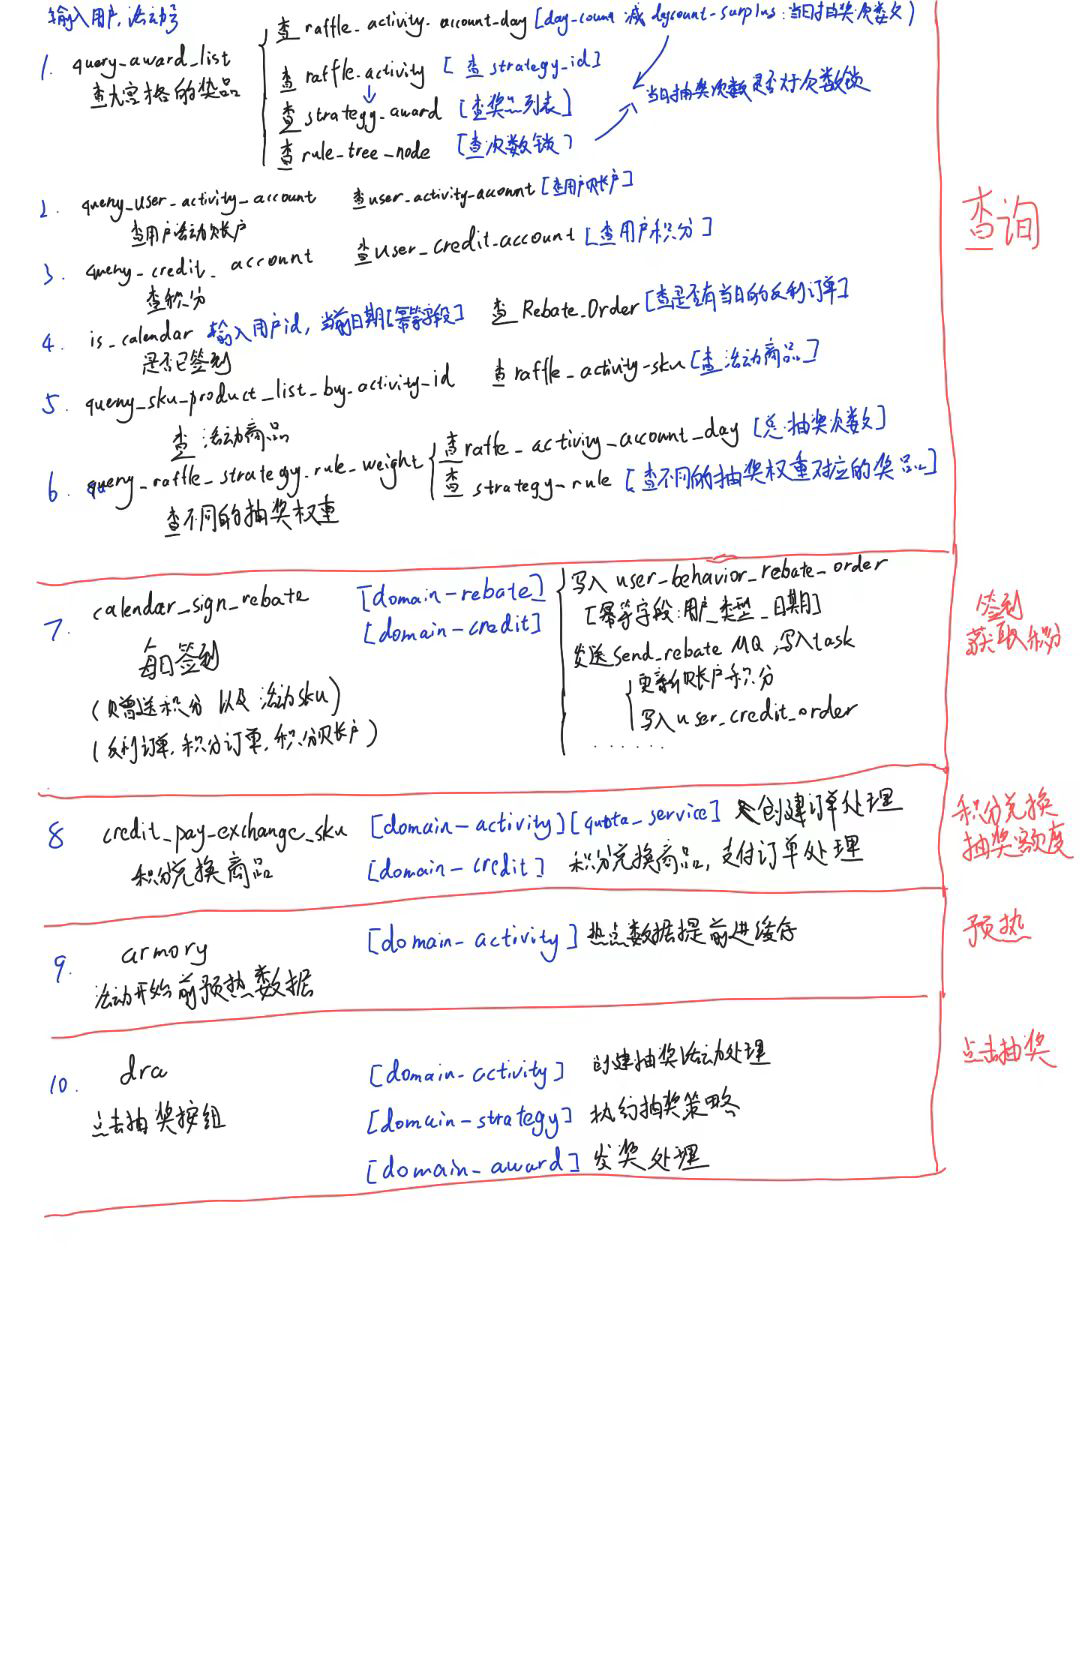 输入用户,活动号
1. query_award_list
查九宫格的奖品
查 raffle_activity_account_day [day_count 减 daycount_surplus:当日抽奖次数]
查 raffle_activity [查 strategy_id]
查 strategy_award [查奖品列表]
查 rule_tree_node [查次数锁]
当日抽奖次数是否大于次数锁
2. query_user_activity_account 查user_activity_account [查用户账户]
查用户活动账户
3. query_credit_account 查user_credit_account [查用户积分]
查积分
4. is_calendar 输入用户id, 当前日期[幂等字段] 查 Rebate_Order [查是否有当日的反利订单]
是否已签到
5. query_sku_product_list_by_activity_id 查 raffle_activity_sku [查活动商品]
查 活动商品
6. query_raffle_strategy_rule_weight
查不同的抽奖权重
查raffle_activity_account_day [总抽奖次数]
查 strategy_rule [查不同的抽奖权重对应的奖品]
查询
7. calendar_sign_rebate
每日签到
(赠送积分 以及 活动sku)
(反利订单, 积分订单, 积分账户)
[domain-rebate]
[domain-credit]
写入 user_behavior_rebate_order
[幂等字段:用户_类型_日期]
发送 send_rebate MQ, 写入task
更新账户积分
写入 user_credit_order
......
签到
获取积分
8 credit_pay_exchange_sku [domain-activity][quota_service] 创建订单处理
积分兑换商品 [domain-credit] 积分兑换商品, 支付订单处理
积分兑换
抽奖额度
9. armory [domain-activity] 热点数据提前进缓存
活动开始前预热数据
预热
10. dra [domain-activity] 创建抽奖活动处理
点击抽奖按钮 [domain-strategy] 执行抽奖策略
[domain-award] 发奖处理
点击抽奖